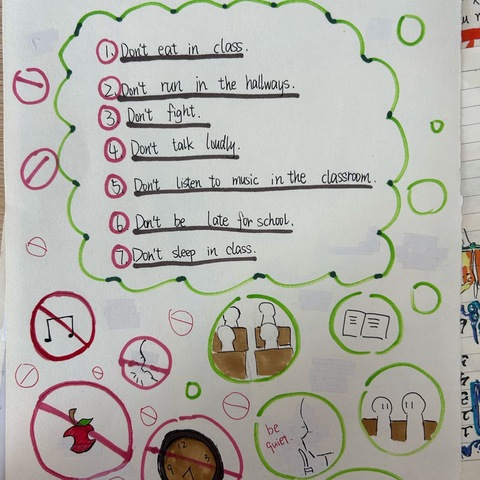 1. Don't eat in class.
2. Don't run in the hallways.
3. Don't fight.
4. Don't talk loudly.
5. Don't listen to music in the classroom.
6. Don't be late for school.
7. Don't sleep in class.
be quiet.
12
9 3